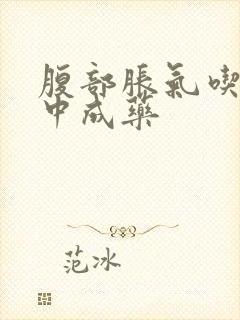 腹部胀氣喫
中成藥
范冰